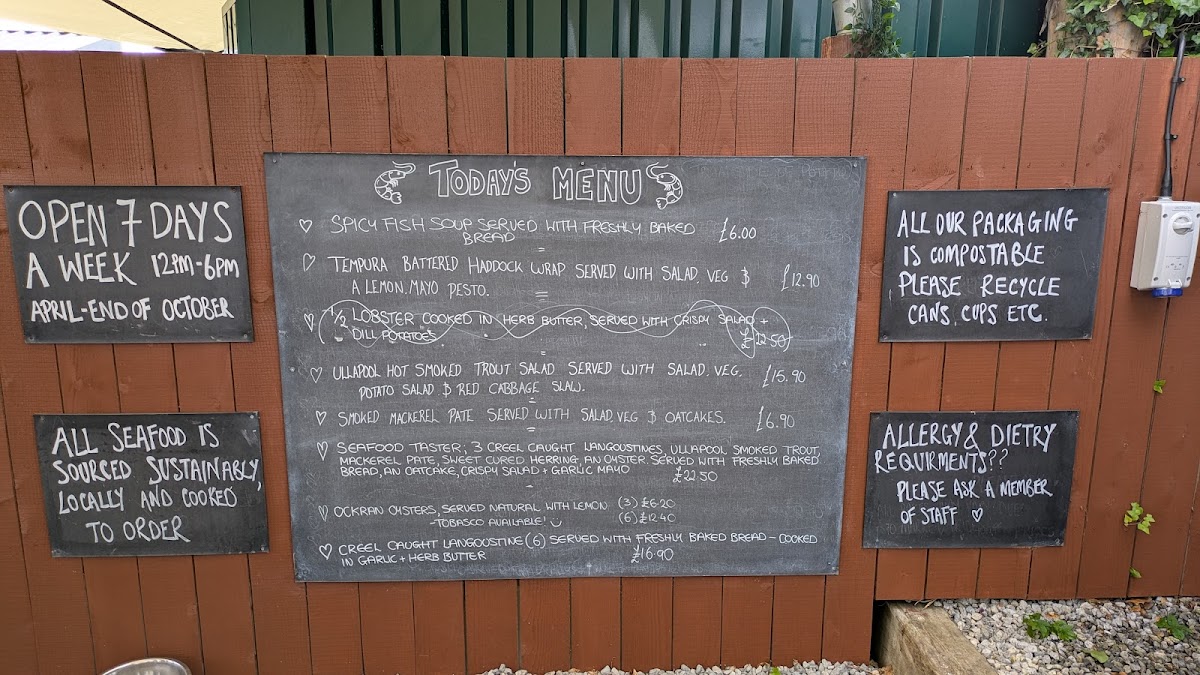 OPEN 7 DAYS
A WEEK 12PM-6PM
APRIL-END OF OCTOBER
ALL SEAFOOD IS
SOURCED SUSTAINABLY,
LOCALLY AND COOKED
TO ORDER
TODAY'S MENU
♡ SPICY FISH SOUP SERVED WITH FRESHLY BAKED £6.00
BREAD
♡ TEMPURA BATTERED HADDOCK WRAP SERVED WITH SALAD, VEG & £12.90
A LEMON, MAYO PESTO.
♡ 1/2 LOBSTER COOKED IN HERB BUTTER, SERVED WITH CRISPY SALAD +
DILL POTATOES £12.50
♡ ULLAPOOL HOT SMOKED TROUT SALAD SERVED WITH SALAD, VEG, £15.90
POTATO SALAD & RED CABBAGE SLAW.
♡ SMOKED MACKEREL PATE SERVED WITH SALAD, VEG & OATCAKES. £6.90
♡ SEAFOOD TASTER; 3 CREEL CAUGHT LANGOUSTINES, ULLAPOOL SMOKED TROUT,
MACKEREL PATE, SWEET CURED HERRING, AN OYSTER. SERVED WITH FRESHLY BAKED
BREAD, AN OATCAKE, CRISPY SALAD + GARLIC MAYO £22.50
♡ OCKRAN OYSTERS, SERVED NATURAL WITH LEMON (3) £6.20
-TOBASCO AVAILABLE! (6) £12.40
♡ CREEL CAUGHT LANGOUSTINE (6) SERVED WITH FRESHLY BAKED BREAD - COOKED
IN GARLIC + HERB BUTTER £16.90
ALL OUR PACKAGING
IS COMPOSTABLE
PLEASE RECYCLE
CANS, CUPS ETC.
ALLERGY & DIETRY
REQUIRMENTS??
PLEASE ASK A MEMBER
OF STAFF ♡